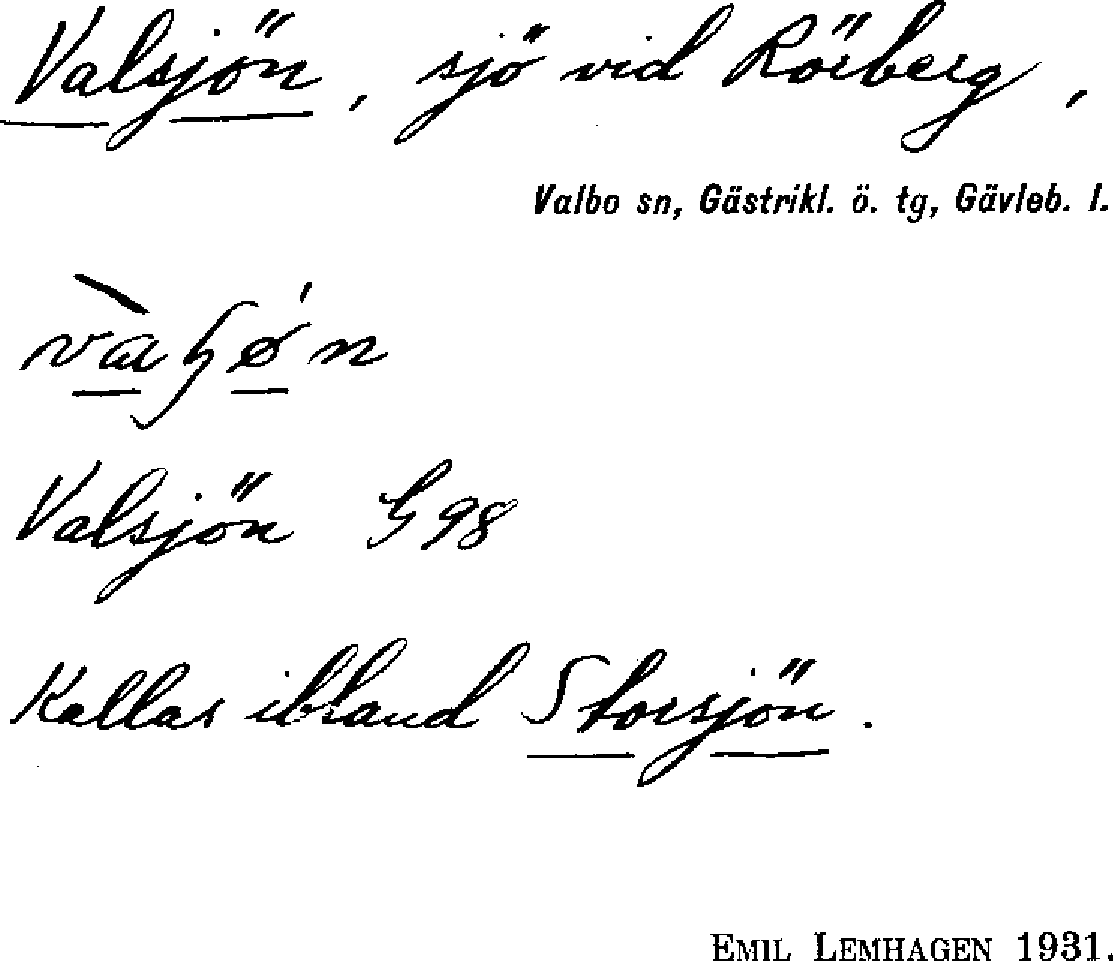 Valsjön, sjö vid Rörberg,
Valbo sn, Gästrikl. ö. tg, Gävleb. l.
Valsjön G 98
Kallas ibland Storsjön.
EMIL LEMHAGEN 1931.